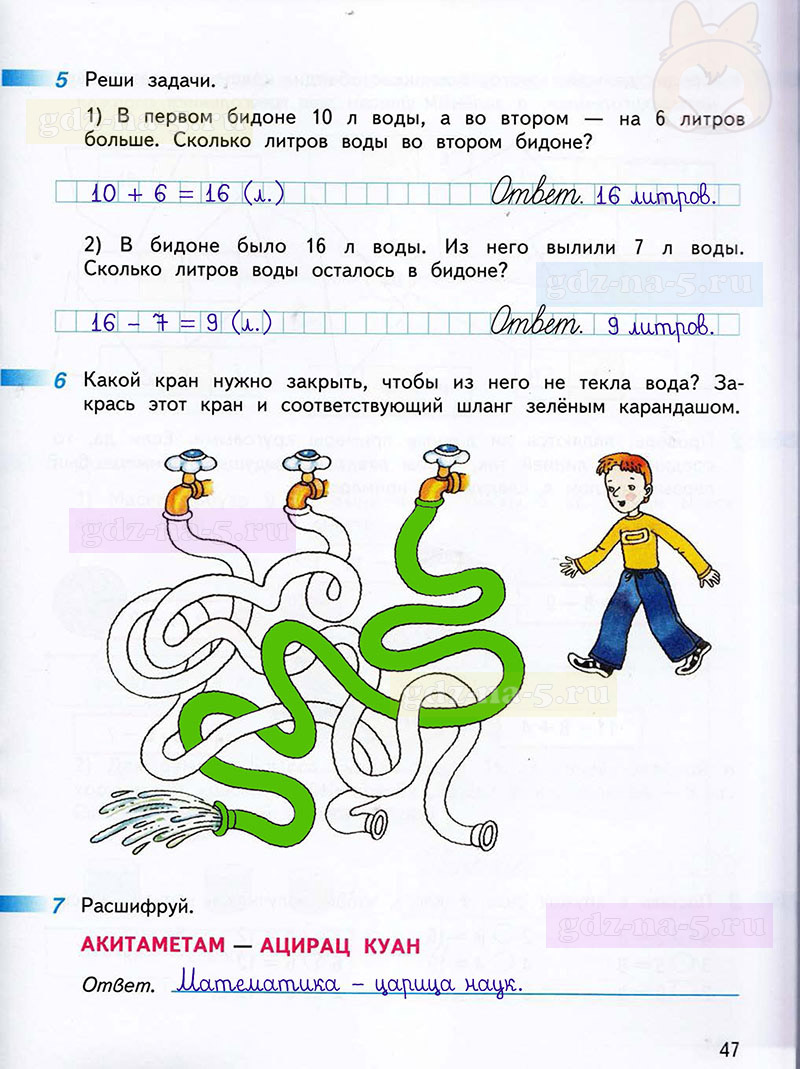 5 Реши задачи.
1) В первом бидоне 10 л воды, а во втором — на 6 литров
больше. Сколько литров воды во втором бидоне?
gdz-na-5.ru
10 + 6 = 16 (л.) Ответ. 16 литров.
2) В бидоне было 16 л воды. Из него вылили 7 л воды.
Сколько литров воды осталось в бидоне?
gdz-na-5.ru
16 – 7 = 9 (л.) Ответ. 9 литров.
6 Какой кран нужно закрыть, чтобы из него не текла вода? За-
крась этот кран и соответствующий шланг зелёным карандашом.
gdz-na-5.ru
gdz-na-5.ru
7 Расшифруй.
АКИТАМЕТАМ — АЦИРАЦ КУАН
gdz-na-5.ru
Ответ. Математика – царица наук.
47